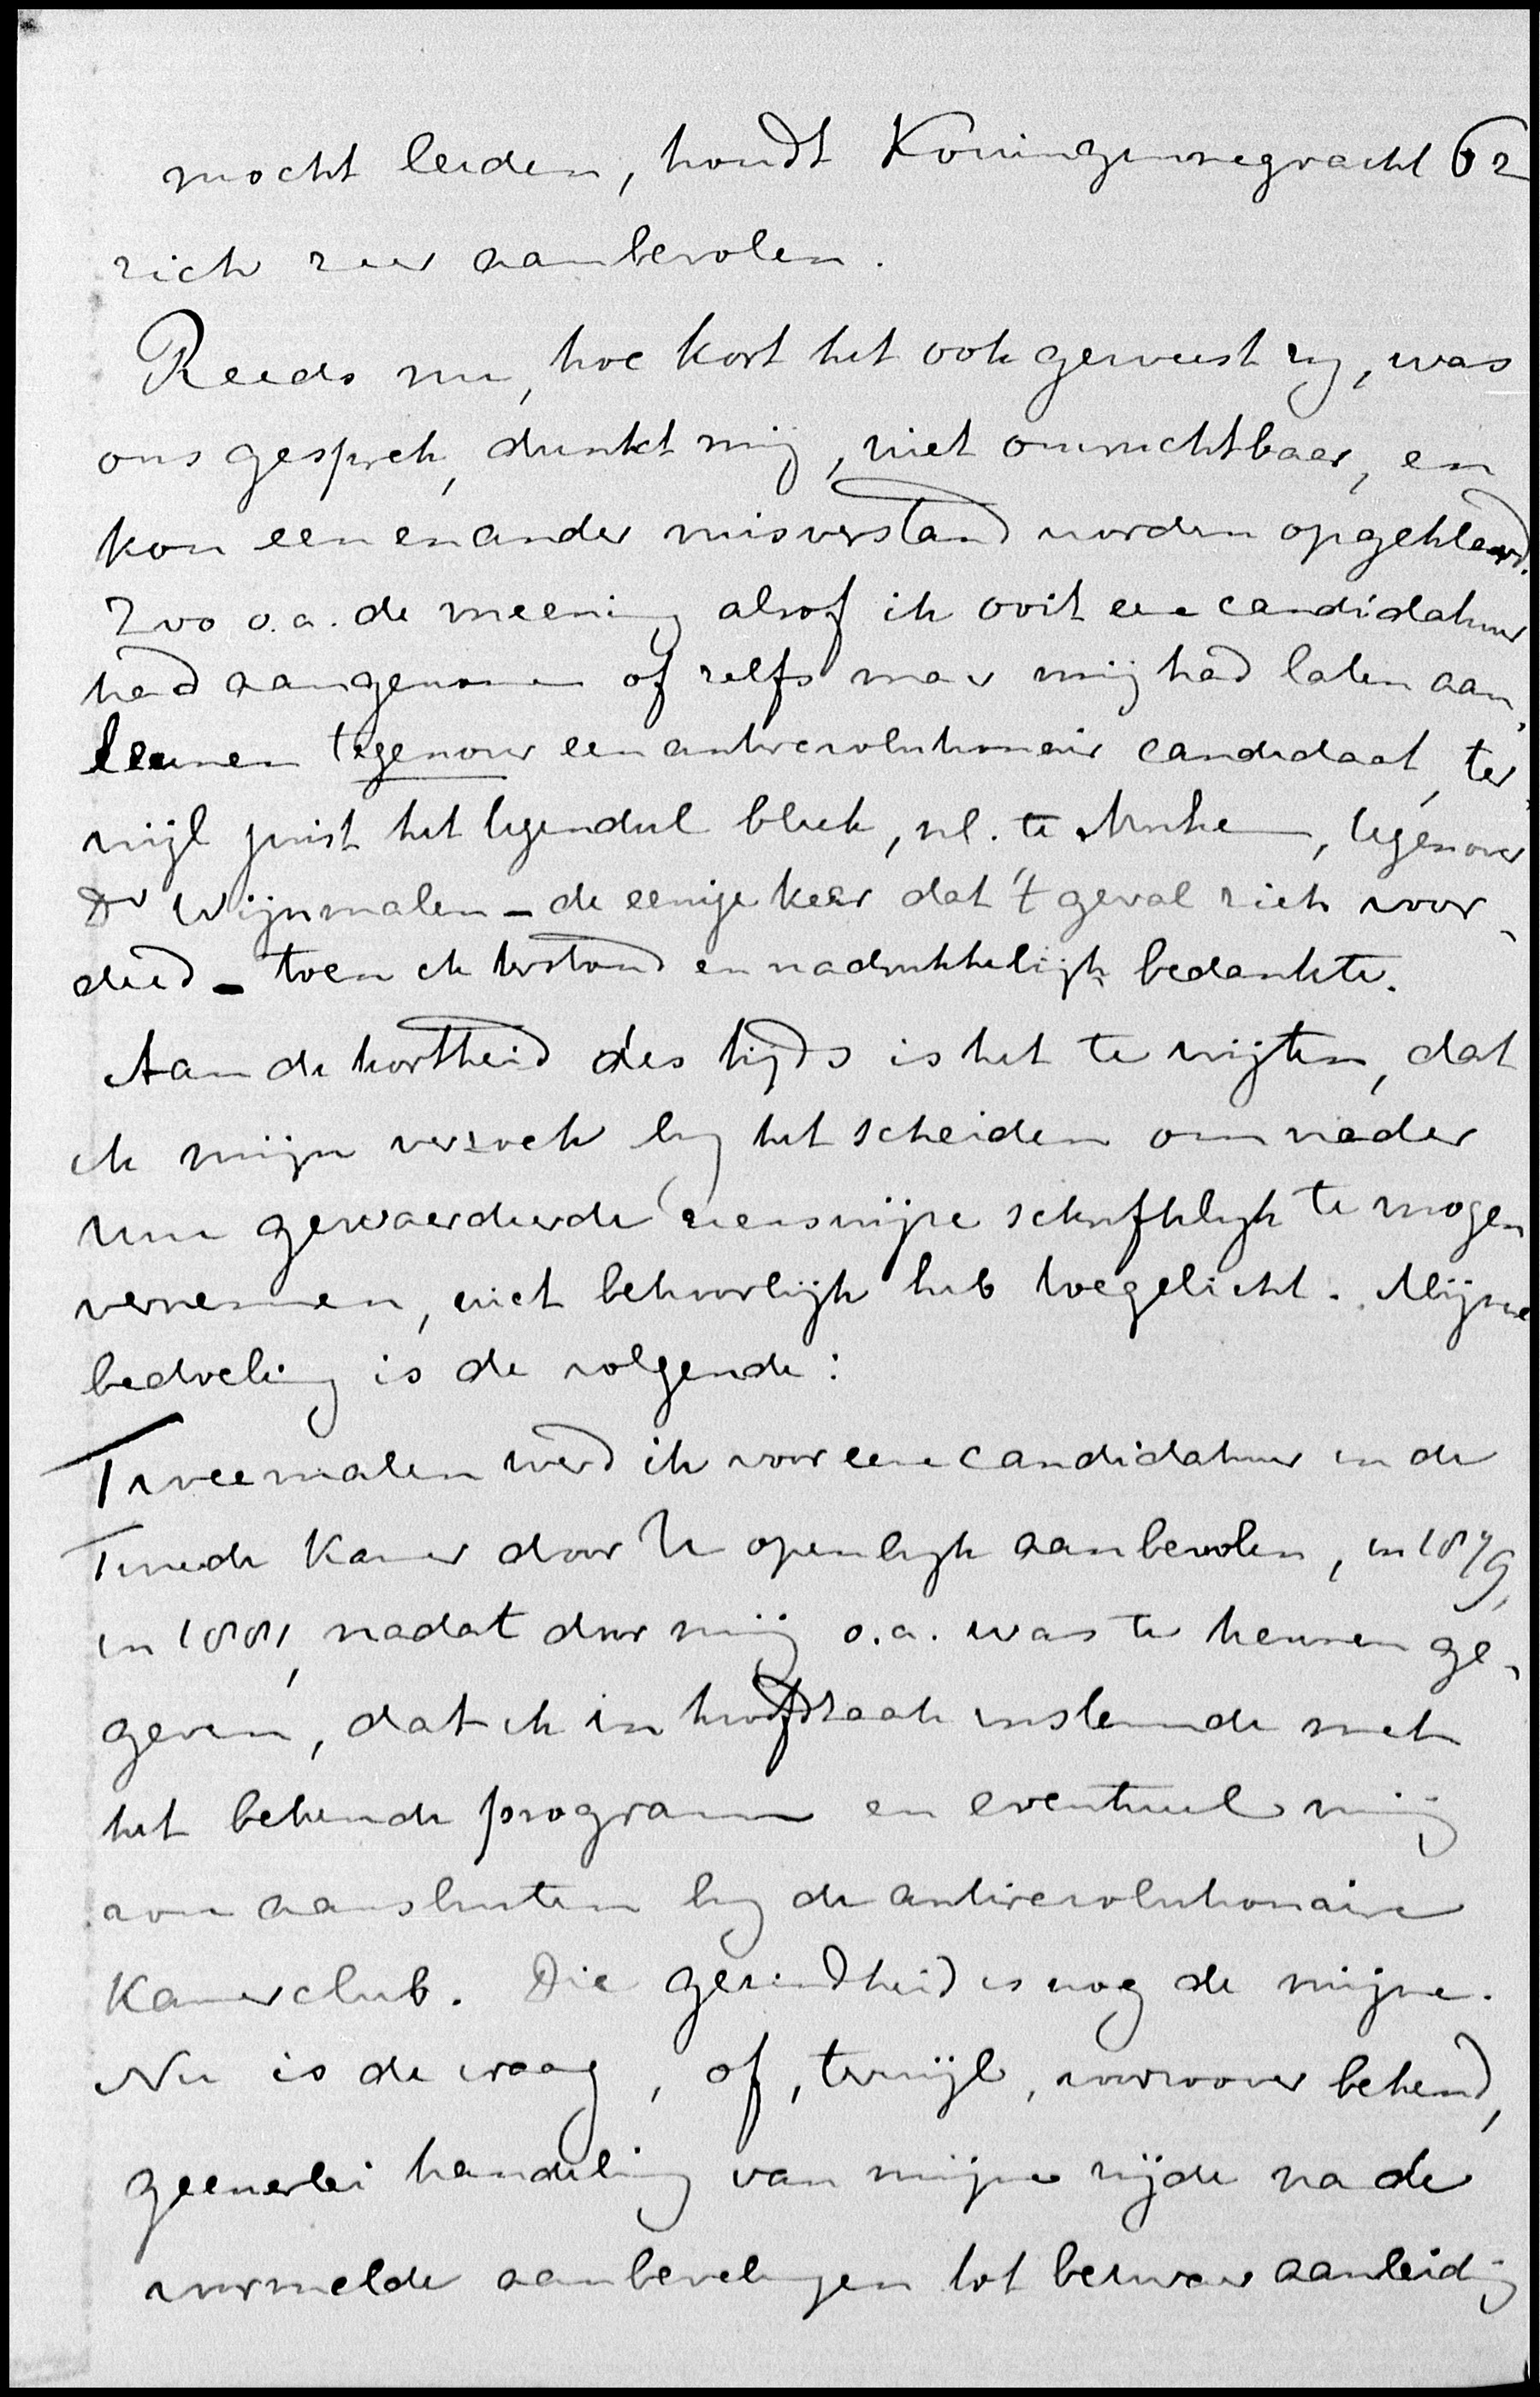 mocht leiden, houdt Koninginnegracht 62
zich zeer aanbevolen.
Reeds nu, hoe kort het ook geweest zij, was
ons gesprek, dunkt mij, niet onvruchtbaar, en
kon een en ander misverstand worden opgeklaard.
Zoo o.a. de meening alsof ik ooit eene candidatuur
had aangenomen of zelfs maar mij had laten aan-
leunen tegenover een antirevolutionair candidaat, ter-
wijl juist het tegendeel bleek, nl. te Arnhem, tegenover
Dr Wijnmalen - de eenige keer dat 't geval zich voor-
deed - toen ik terstond en nadrukkelijk bedankte.
Aan de kortheid des tijds is het te wijten, dat
ik mijn verzoek bij het scheiden om nader
Uw gewaardeerde zienswijze schriftelijk te mogen
vernemen, niet behoorlijk heb toegelicht. Mijne
bedoeling is de volgende:
Tweemalen werd ik voor eene candidatuur in de
Tweede Kamer door U openlijk aanbevolen, in 1879,
in 1881, nadat door mij o.a. was te kennen ge-
geven, dat ik in hoofdzaak instemde met
het bekende program en eventueel mij
zou aansluiten bij de antirevolutionaire
Kamerclub. Die gezindheid is nog de mijne.
Nu is de vraag, of, terwijl, voorzoover bekend,
geenerlei handeling van mijne zijde na de
vermelde aanbevelingen tot bezwaar aanleiding